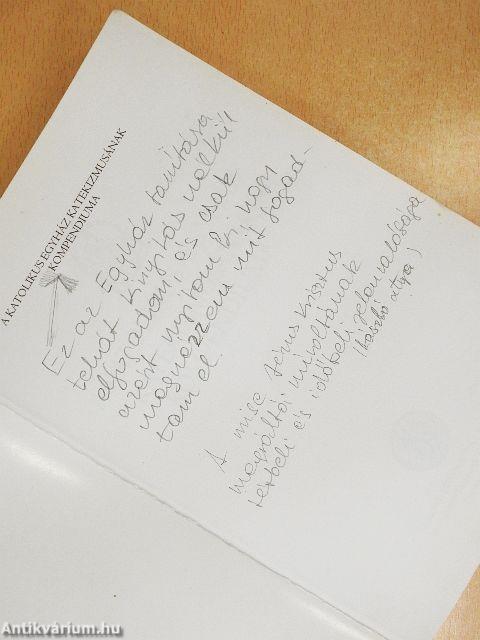 A KATOLIKUS EGYHÁZ KATEKIZMUSÁNAK
KOMPENDIUMA
Ez az Egyház tanítása,
tehát kinyitás nélkül
elfogadom, és csak
azért nyitom ki, hogy
megnézzem mit fogad-
tam el.
A mise Jézus Krisztus
megváltói mivoltának
térbeli és időbeli jelenvalósága
(László atya)
Antikvárium.hu